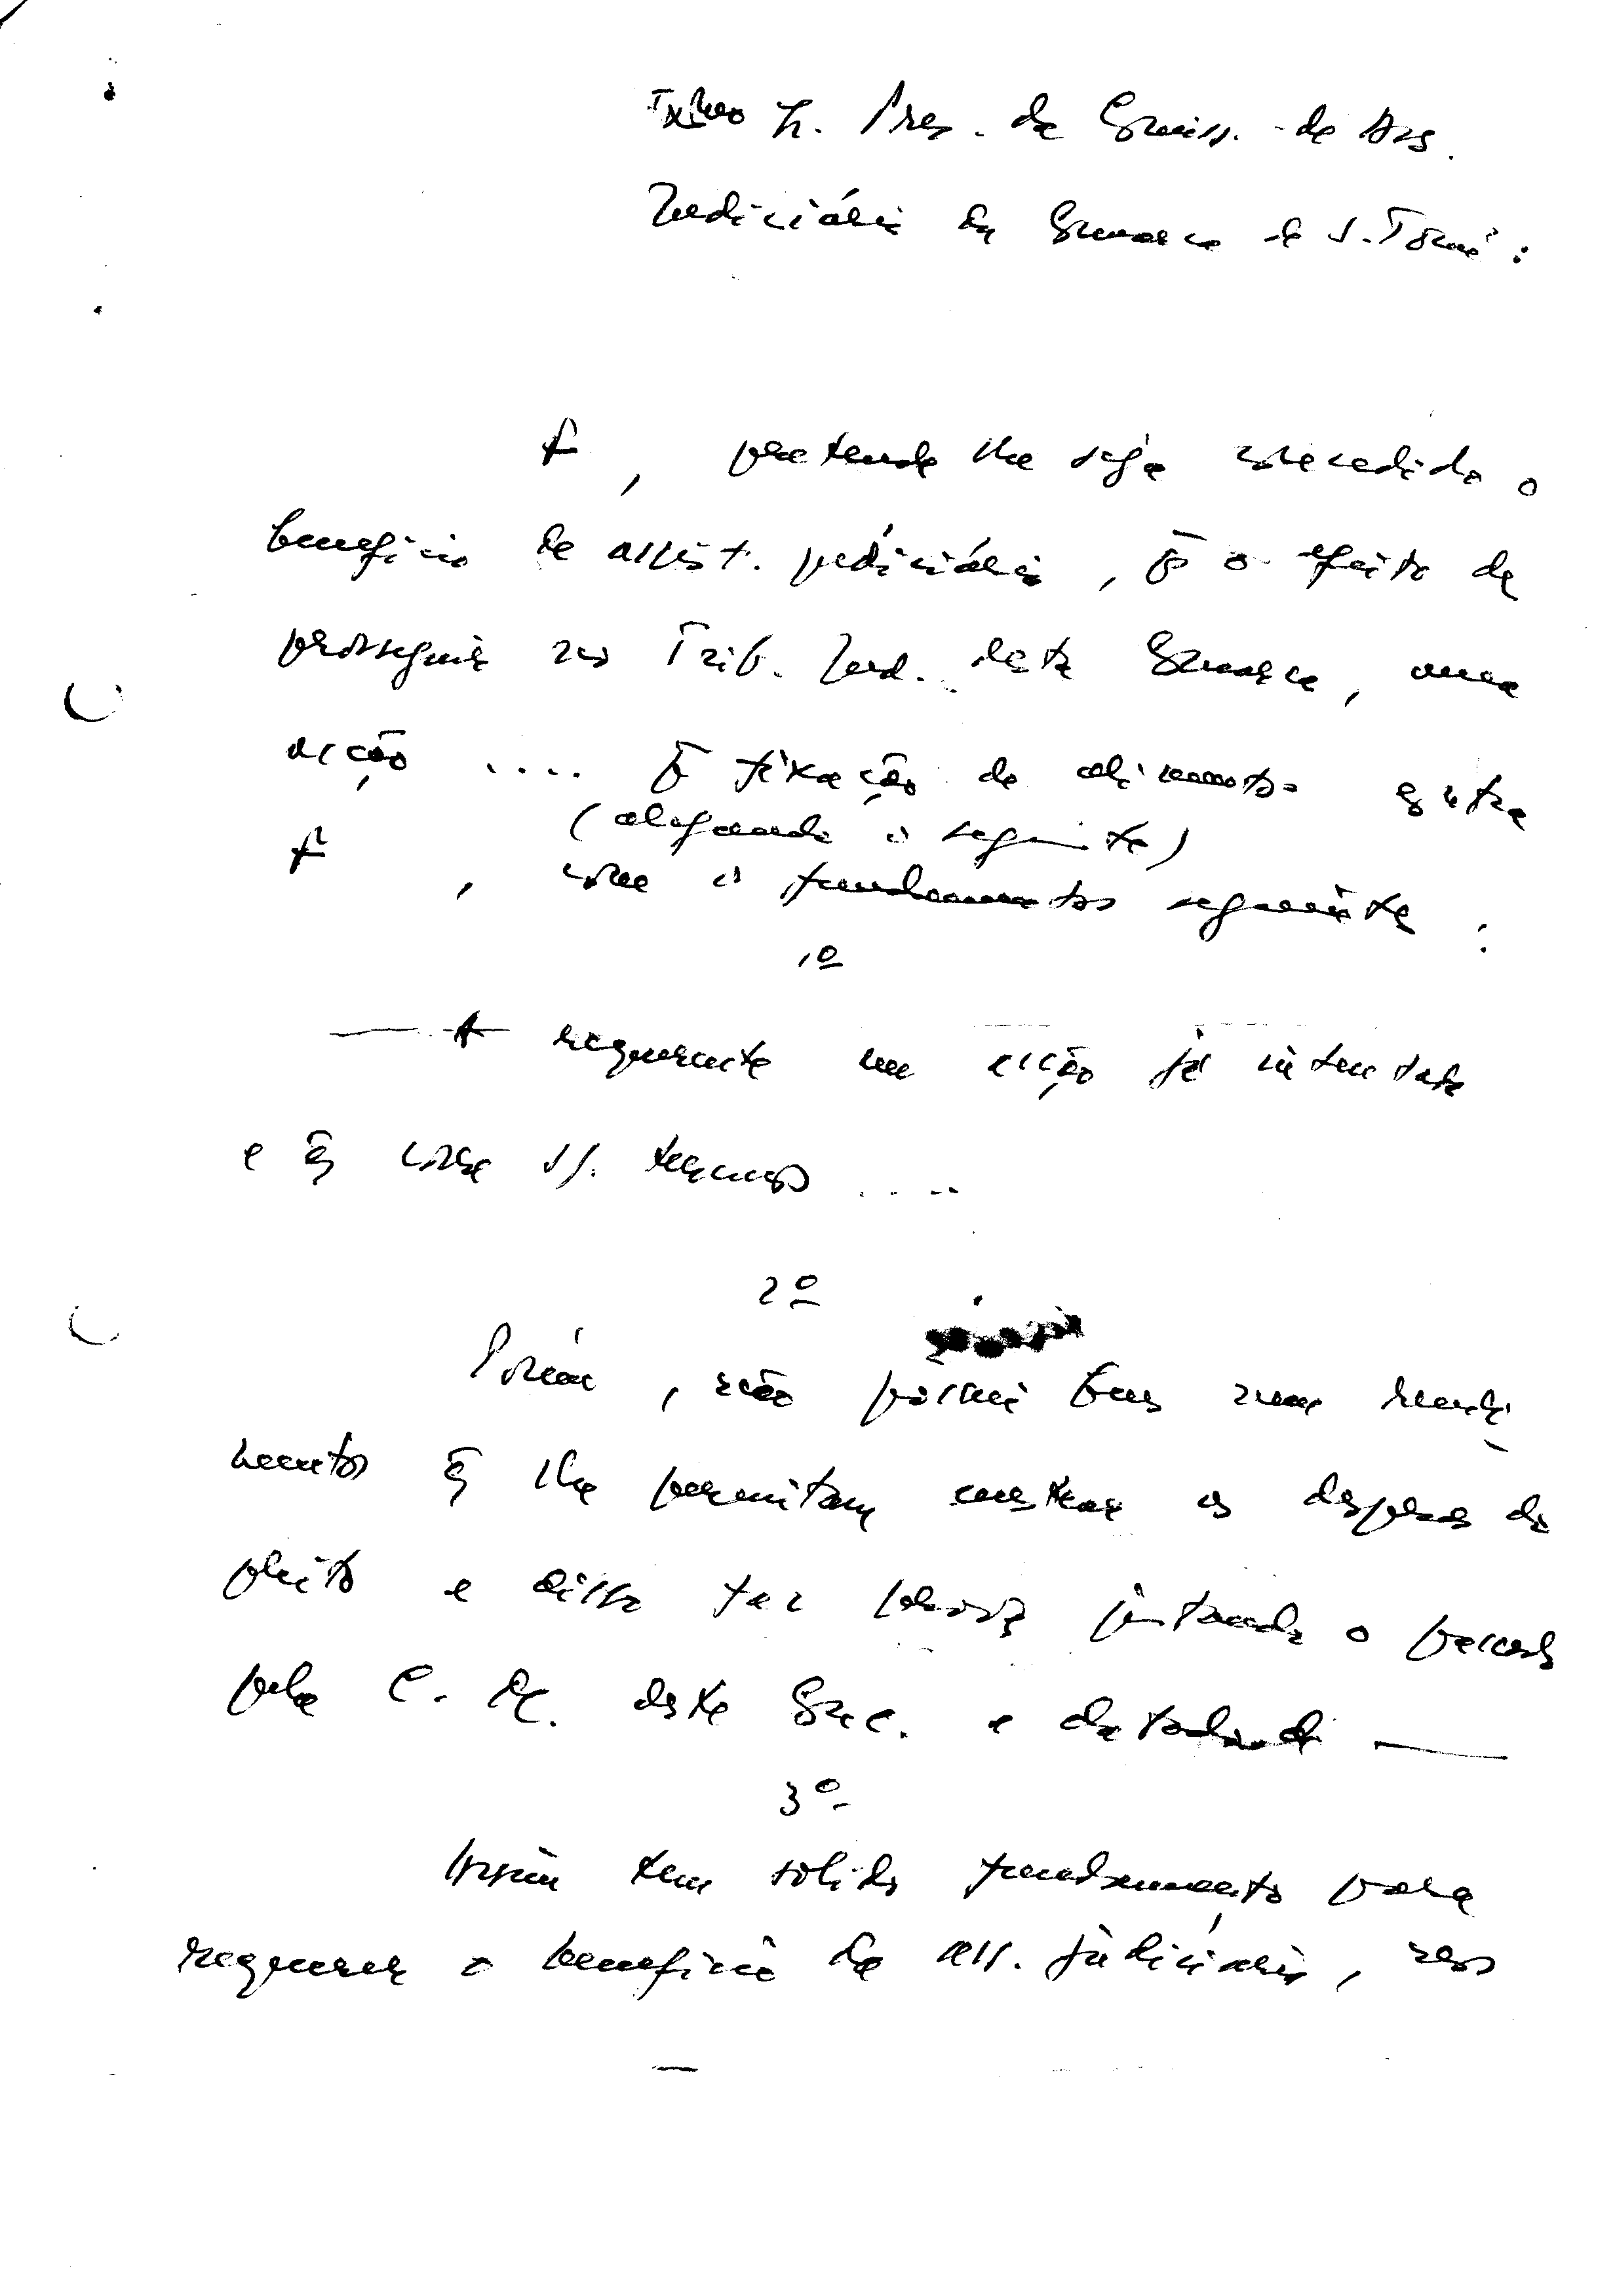 Exmo Sr. Pres. da Comiss. de Ass.
Judiciária da Comarca de S. Tomé:
F , pretende lhe seja concedido o
benefício de assist. judiciária, p̄ o efeito de
prosseguir no Trib. Jud. desta Comarca, uma
acção .... p̄ fixação de alimentos contra
(alegando o seguinte)
F , com os fundamentos seguintes:
1º
— A requerente em acção já intentada
e q̄ corre ss. termos ....
2º
Porém, não possui bens nem rendi-
mentos q̄ lhe permitam custear as despesas do
pleito e disso faz prova juntando o passado
pela C. M. deste Conc. e
3º
Assim tem solido fundamento para
requerer o benefício da ass. judiciária, nos